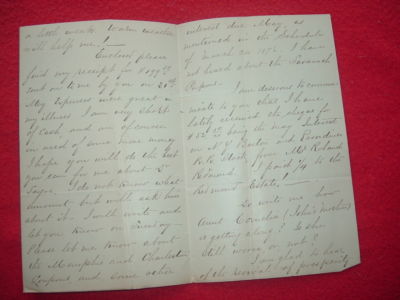 a little weak. Warm weather
will help me! —
Enclosed please
find my receipt for $499
sent out to me by you on 20th
My expenses were great in
my illness I am very short
of cash, and am of course
in need of some more money
I hope you will do the best
you can for me about
I do not know what
amount but will ask him
about it. I will write and
let you know on Tuesday
Please let me know about
the Memphis and Charleston
Coupons and some other
interest due May, as
mentioned in the Schedule
of March 20 1872. I have
not heard about the Savannah
I am desirous to commu-
nicate to you that I have
lately received the cheque for
$52 being the May Interest
on N.Y Boston and Providence
R.R. Stock, from Mr Roland
Redmond. I paid 1/4 to the
Redmond Estate! —
Do write me how
Aunt Cornelia (John's mother)
is getting along? Is she
still worse, or not?
I am glad to hear
of the revival of prosperity